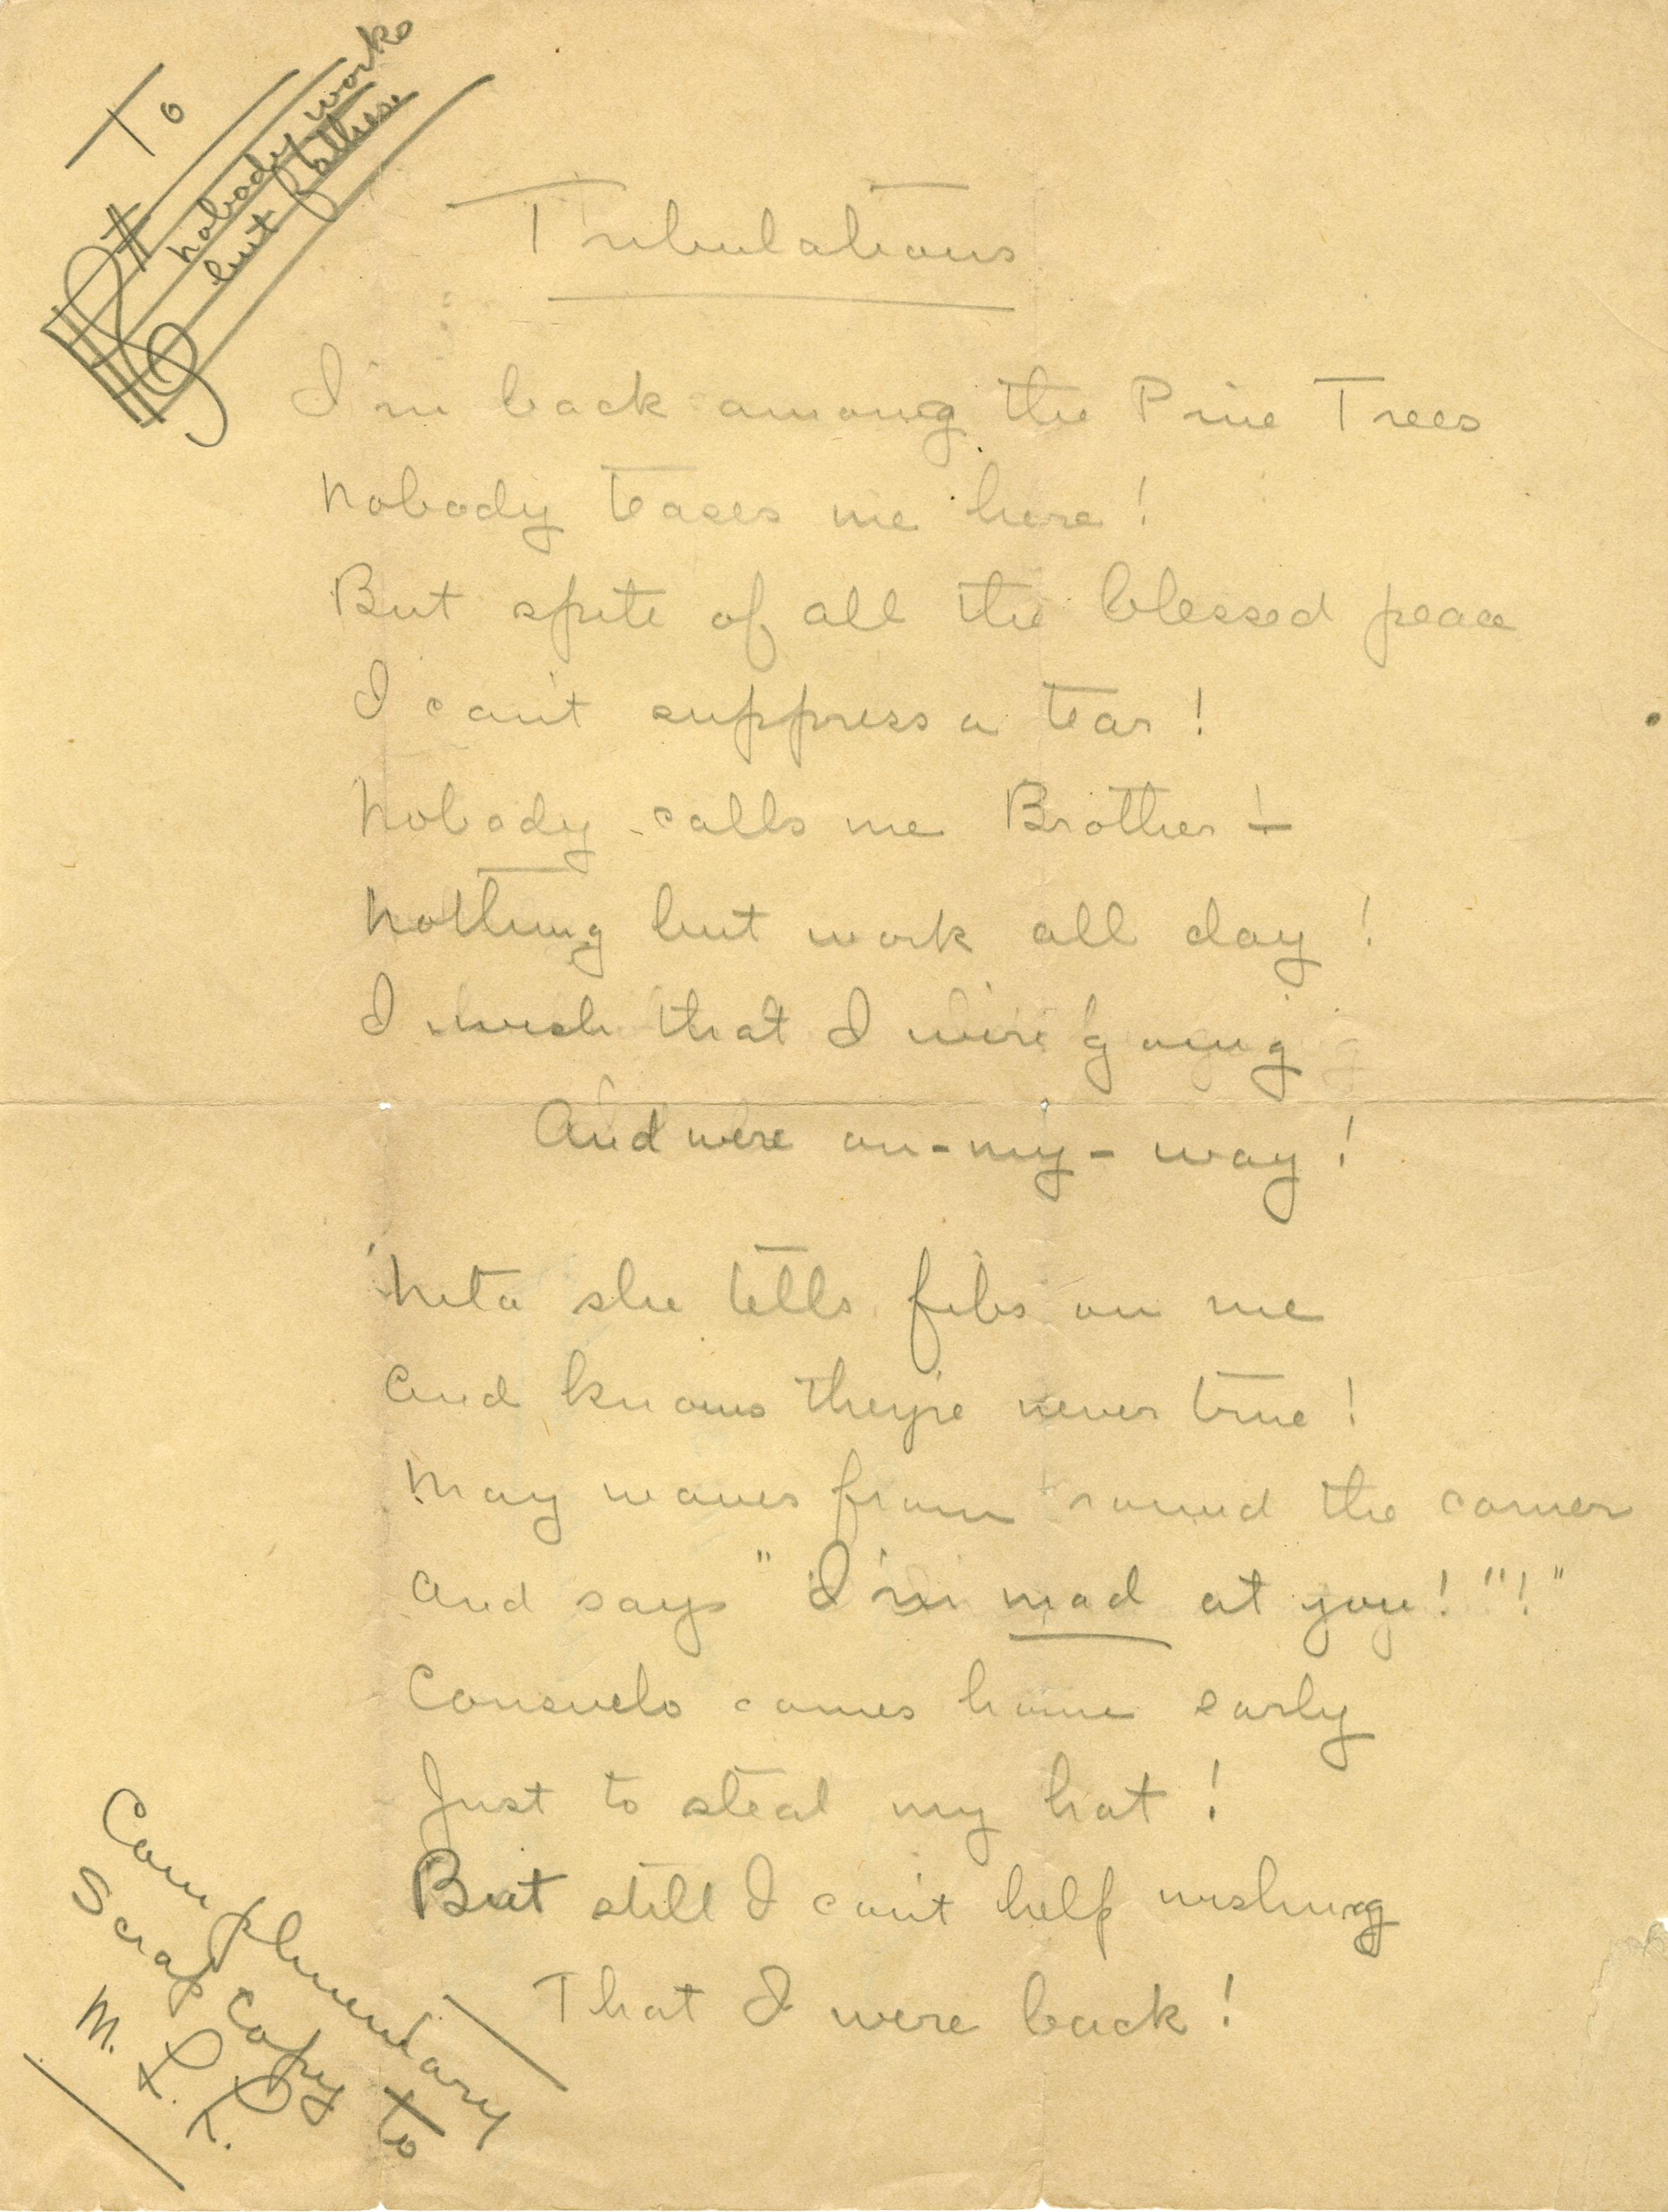 To
Nobody works
but father
Tribulations
I'm back among the Pine Trees
Nobody teases me here!
But spite of all the blessed peace
I can't suppress a tear!
Nobody calls me Brother!—
Nothing but work all day!
I wish that I were going
And were on-my-way!
Neta she tells fibs on me
And knows they're never true!
May waves from 'round the corner
And says "I'm mad at you!"!"
Consuelo comes home early
Just to steal my hat!
But still I can't help wishing
That I were back!
Complimentary
Scrap Copy to
M. L. P.